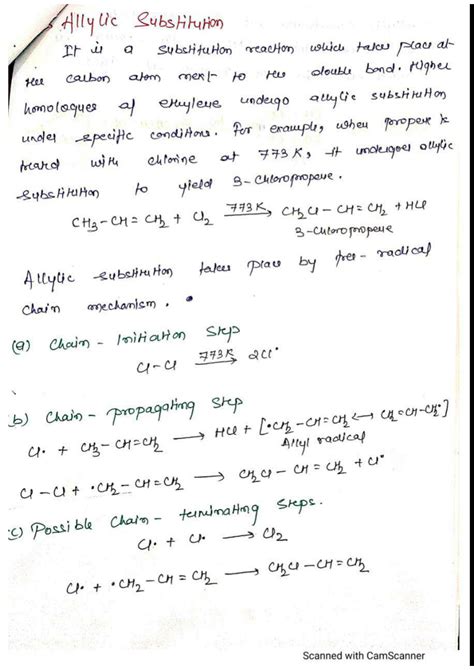 Allylic Substitution
It is a substitution reaction which takes place at
the carbon atom next to the double bond. Higher
homologues of ethylene undergo allylic substitution
under specific conditions. For example, when propene is
treard with chlorine at 773K, it undergoes allylic
substitution to yield 3-chloropropene.
CH₃-CH=CH₂ + Cl₂ 773K→ CH₂Cl-CH=CH₂ + HCl
3-chloropropene
Allylic substitution takes place by free-radical
chain mechanism.
(a) Chain-Initiation Step
Cl-Cl 773K→ 2Cl•
b) Chain-propagating Step
Cl• + CH₃-CH=CH₂ → HCl + [•CH₂-CH=CH₂ ↔ CH₂=CH-CH₂•]
Allyl radical
Cl-Cl + •CH₂-CH=CH₂ → CH₂Cl-CH=CH₂ + Cl•
c) Possible Chain-terminating Steps.
Cl• + Cl• → Cl₂
Cl• + •CH₂-CH=CH₂ → CH₂Cl-CH=CH₂
Scanned with CamScanner